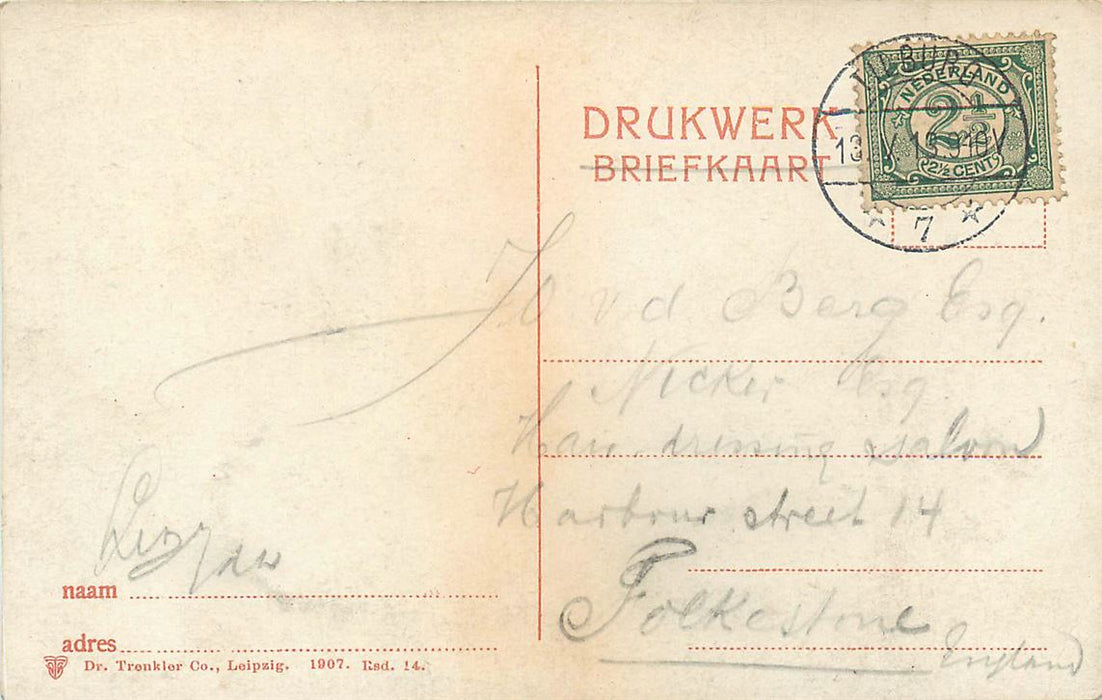 DRUKWERK
BRIEFKAART
TILBURG
NEDERLAND
2½
2½ CENT
7
v. d. Berg Esq.
Nicker Esq
Hair dressing saloon
Harbour street 14
Folkestone
England
naam
adres
Dr. Trenkler Co., Leipzig. 1907. Rsd. 14.